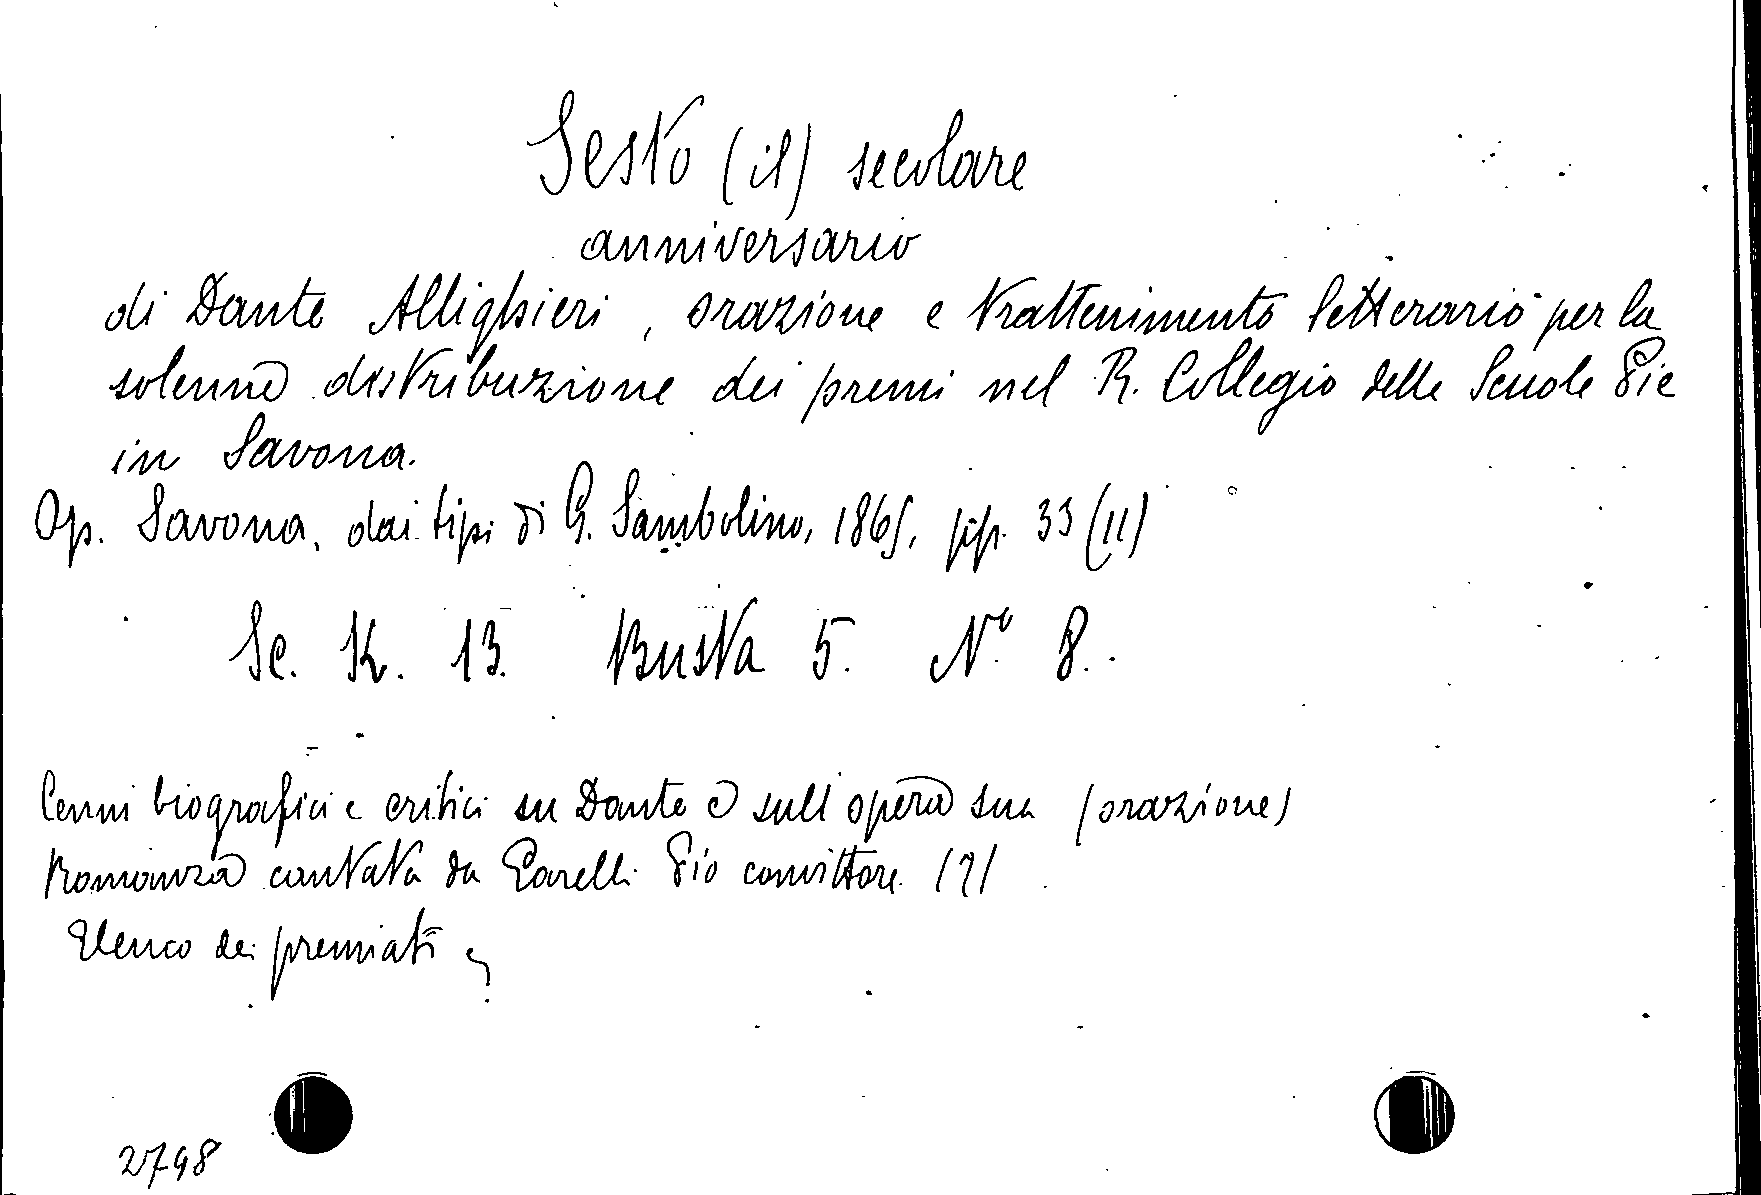 Sesto (il) secolare
anniversario
di Dante Allighieri, orazione e trattenimento letterario per la
solenne distribuzione dei premi nel R. Collegio delle Scuole Pie
in Savona.
Op. Savona, dai tipi di G. Sambolino, 1865, pp. 33 (11)
Sc. K. 13. Busta 5. N° 8.
Cenni biografici e critici su Dante e sull'opera sua (orazione)
Romanza cantata da Garelli Pio convittore (?)
Elenco dei premiati
2798